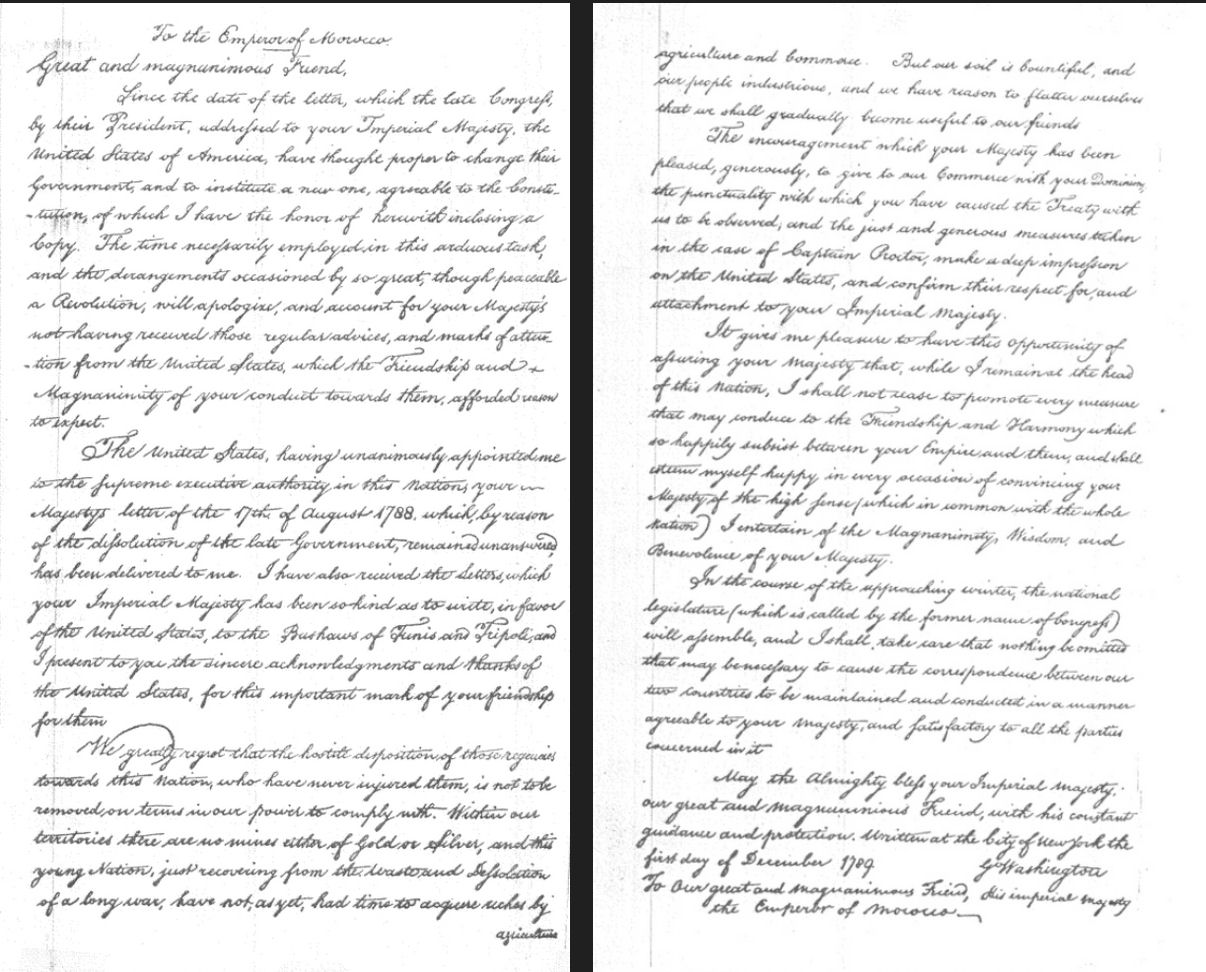 To the Emperor of Morocco.
Great and magnanimous Friend,
Since the date of the letter, which the late Congress,
by their President, addressed to your Imperial Majesty, the
United States of America, have thought proper to change their
Government, and to institute a new one, agreable to the Consti-
-tution, of which I have the honor of herewith inclosing a
Copy. The time necessarily employed in this arduous task,
and the derangements occasioned by so great, though peaceable
a Revolution, will apologize, and account for your Majesty's
not having received those regular advices, and marks of atten-
-tion from the United States, which the Friendship and
Magnanimity of your conduct towards them, afforded reason
to expect.
The United States, having unanimously appointed me
to the supreme executive authority in this Nation, your
Majesty's letter of the 17th. of August 1788. which, by reason
of the dissolution of the late Government, remained unanswered,
has been delivered to me. I have also received the Letters, which
your Imperial Majesty has been so kind as to write, in favor
of the United States, to the Bashaws of Tunis and Tripoli, and
I present to you the sincere acknowledgments and thanks of
the United States, for this important mark of your friendship
for them
We greatly regret that the hostile disposition of those regencies
towards this Nation, who have never injured them, is not to be
removed, on terms in our power to comply with. Within our
territories there are no mines either of Gold or Silver, and this
young Nation, just recovering from the Waste and Desolation
of a long war, have not, as yet, had time to acquire riches by
agriculture
agriculture and Commerce. But our soil is bountiful, and
our people industrious, and we have reason to flatter ourselves
that we shall gradually become useful to our friends
The encouragement which your Majesty has been
pleased, generously, to give to our Commerce with your Dominions,
the punctuality with which you have caused the Treaty with
us to be observed, and the just and generous measures taken
in the case of Captain Proctor, make a deep impression
on the United States, and confirm their respect for, and
attachment to your Imperial Majesty.
It gives me pleasure to have this opportunity of
assuring your Majesty that, while I remain at the head
of this Nation, I shall not cease to promote every measure
that may conduce to the Friendship and Harmony which
so happily subsist between your Empire and them, and shall
esteem myself happy in every occasion of convincing your
Majesty of the high sense (which in common with the whole
Nation) I entertain of the Magnanimity, Wisdom, and
Benevolence of your Majesty.
In the course of the approaching winter, the national
legislature (which is called by the former name of Congress)
will assemble, and I shall take care that nothing be omitted
that may be necessary to cause the correspondence between our
two countries to be maintained and conducted in a manner
agreeable to your Majesty, and satisfactory to all the parties
concerned in it
May the Almighty bless your Imperial Majesty,
our great and magnanimous Friend, with his constant
guidance and protection. Written at the City of New York the
first day of December 1789. Go Washington
To Our great and magnanimous Friend, His imperial majesty
the Emperor of Morocco.